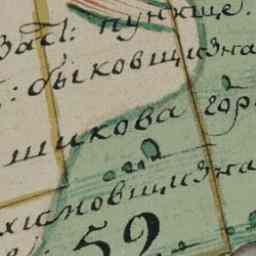 Заст: пункще.
: быковщизна
шикова гор
хісмовщизна
59